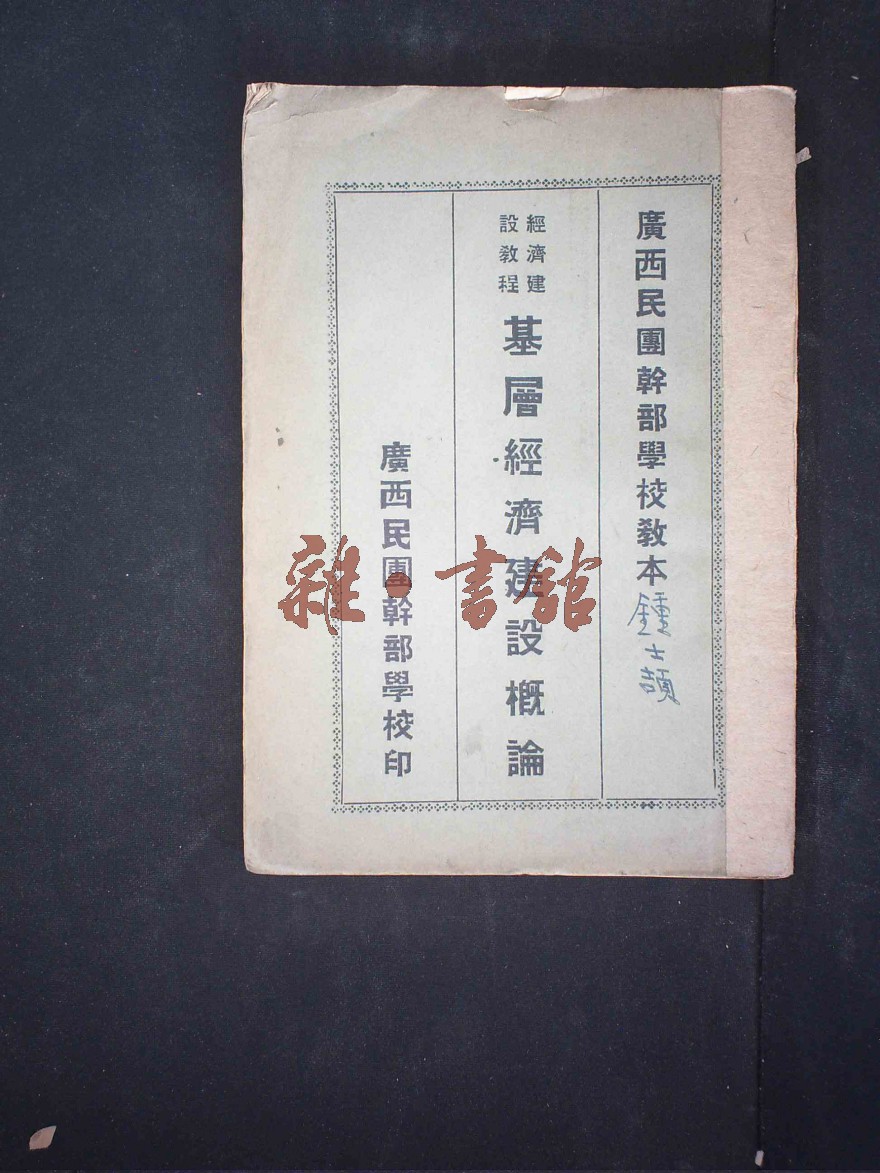 廣西民團幹部學校教本
鍾士頡
經濟建
設教程
基層經濟建設概論
廣西民團幹部學校印
雜·書館